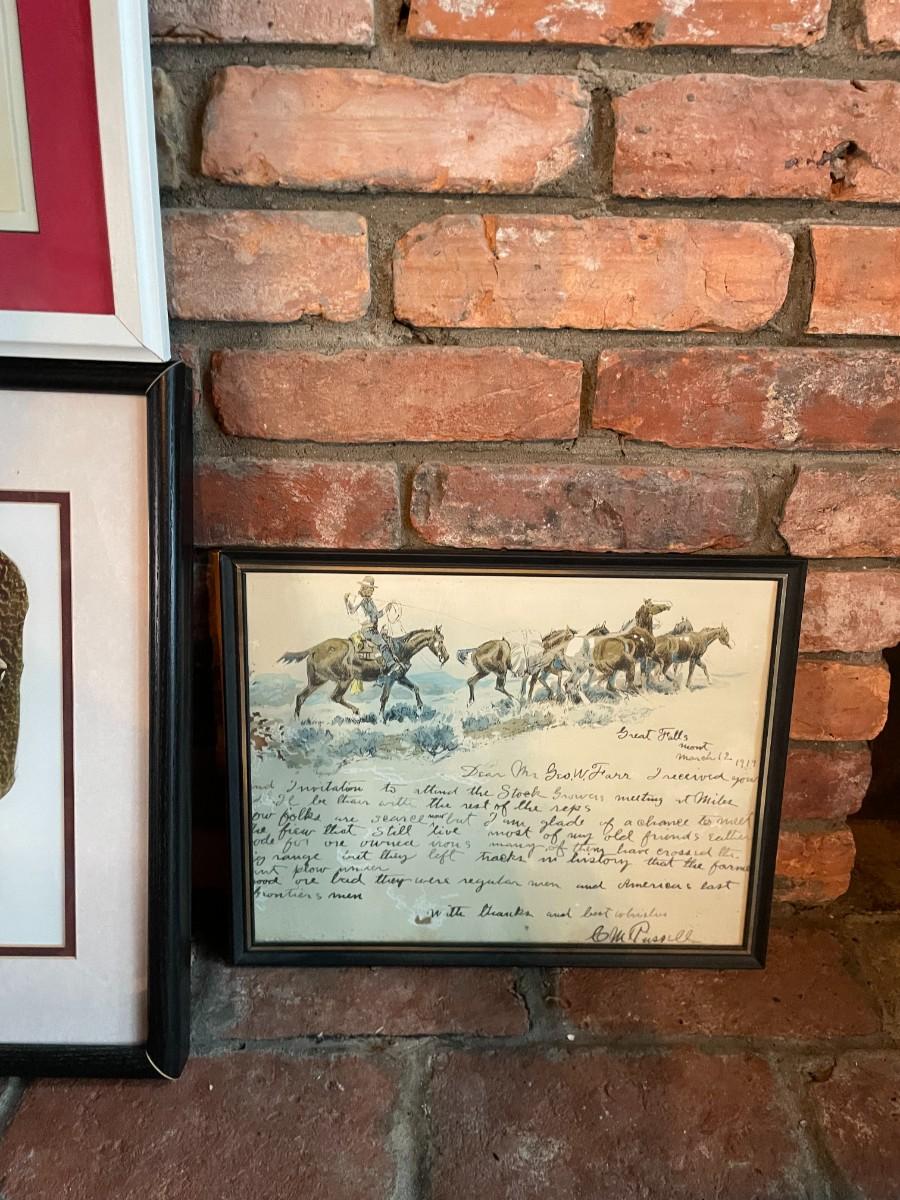 Great Falls
Mont
March 12 1919
Dear Mr Geo. W. Farr I received your
Invitation to attend the Stock Growers meeting at Miles
I'l be thair with the rest of the reps
ow folks are scarce now but I am glade of a chance to meet
the few that still live most of my old friends eather
ode for ore owned irons many of them have crossed the
range but they left tracks in history that the farme
plow under
ood ore bad they were regular men and Americas last
frontiers men
With thanks and best whishes
CM Russell